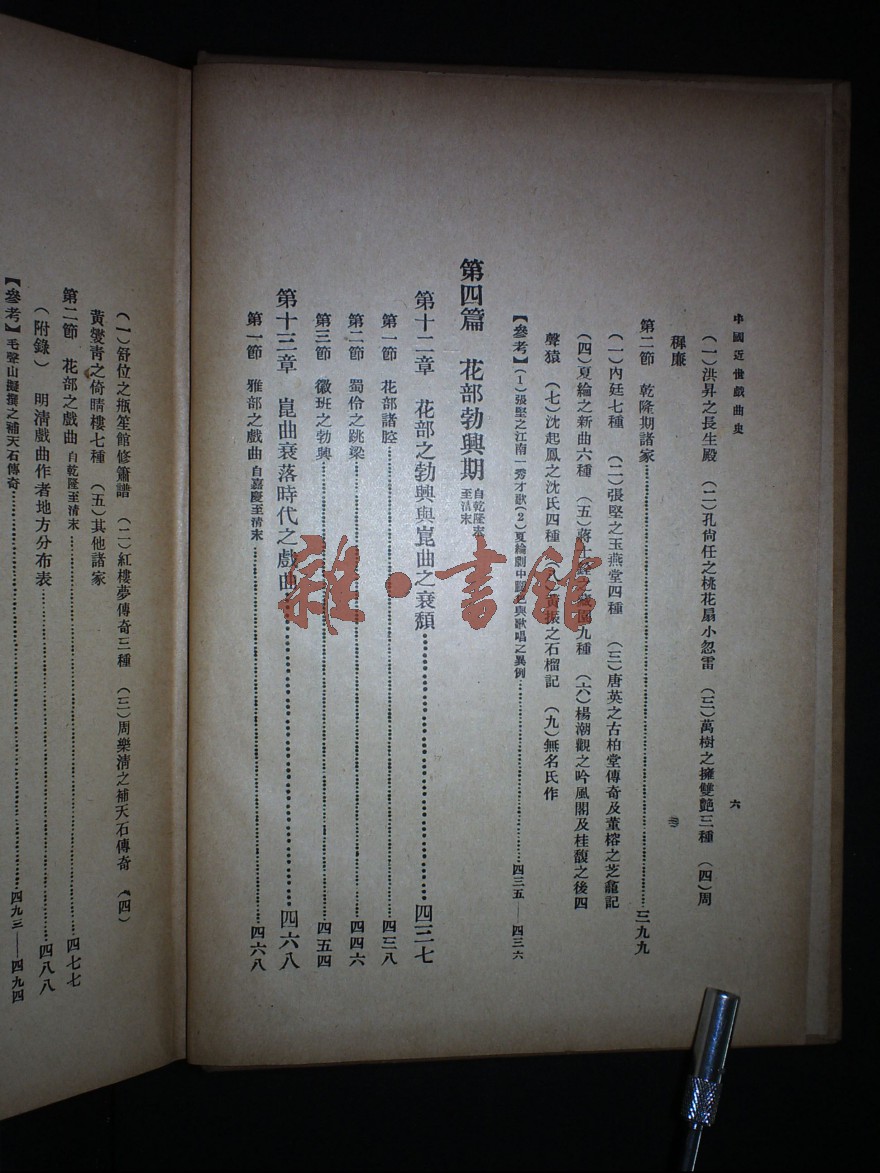 中國近世戲曲史
六
(一)洪昇之長生殿 (二)孔尙任之桃花扇小忽雷 (三)萬樹之擁雙艷三種 (四)周
穉廉
第二節 乾隆期諸家……三九九
(一)內廷七種 (二)張堅之玉燕堂四種 (三)唐英之古柏堂傳奇及董榕之芝龕記
(四)夏綸之新曲六種 (五)蔣士銓之藏園九種 (六)楊潮觀之吟風閣及桂馥之後四
聲猿 (七)沈起鳳之沈氏四種 (八)黃振之石榴記 (九)無名氏作
【參考】(1)張堅之江南一秀才歌(2)夏綸劇中 與歌唱之異例……四三五——四三六
第四篇 花部勃興期 自乾隆末至淸末
第十二章 花部之勃興與崑曲之衰頹……四三七
第一節 花部諸腔……四三八
第二節 蜀伶之跳梁……四四六
第三節 徽班之勃興……四五四
第十三章 崑曲衰落時代之戲曲……四六八
第一節 雅部之戲曲 自嘉慶至淸末……四六八
(一)舒位之瓶笙館修簫譜 (二)紅樓夢傳奇三種 (三)周樂淸之補天石傳奇 (四)
黃燮淸之倚晴樓七種 (五)其他諸家
第二節 花部之戲曲 自乾隆至淸末……四七七
(附錄) 明淸戲曲作者地方分布表……四八八
【參考】毛聲山擬撰之補天石傳奇……四九三——四九四
雜·書館